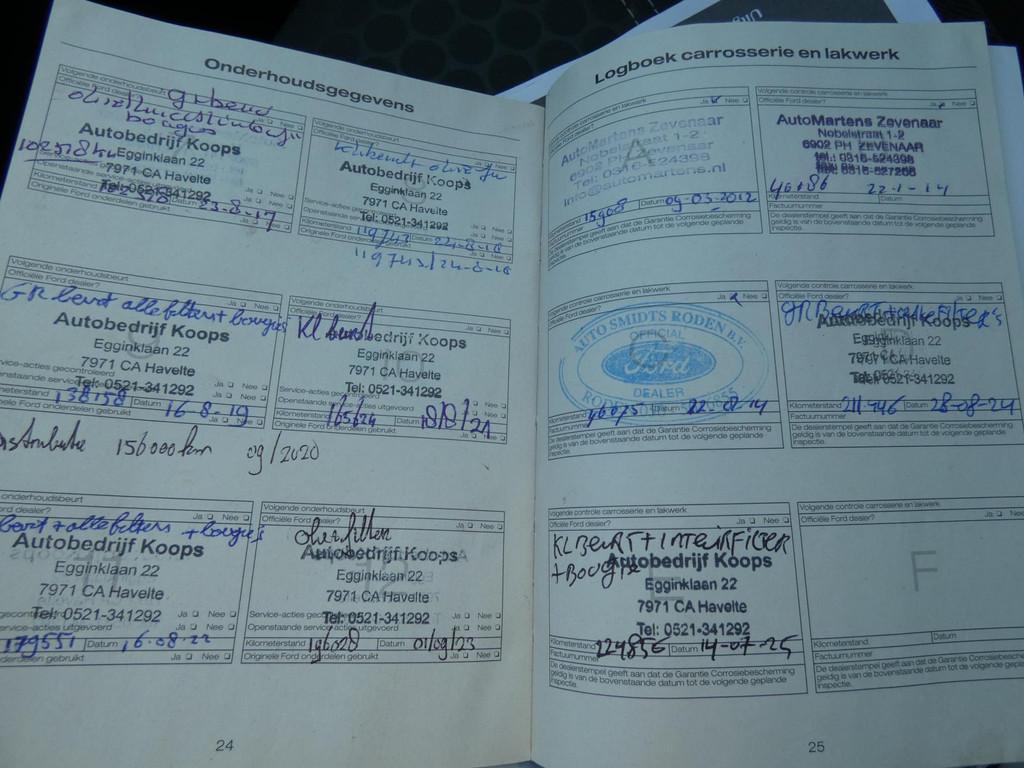 Onderhoudsgegevens
Volgende onderhoudsbeurt
Officiële Ford dealer?
gr beurt
bougies
Autobedrijf Koops
Egginklaan 22
7971 CA Havelte
Tel: 0521-341292
Ja Nee
Datum 23-8-17
Originele Ford onderdelen gebruikt
Volgende onderhoudsbeurt
Officiële Ford dealer? Ja Nee
Autobedrijf Koops
Egginklaan 22
7971 CA Havelte
Tel: 0521-341292
Kilometerstand 119743 Datum 24-8-18
Originele Ford onderdelen gebruikt Ja Nee
119743/24-8-18
Volgende onderhoudsbeurt
Officiële Ford dealer? Ja Nee
GR beurt alle filters + bougies
Autobedrijf Koops
Egginklaan 22
7971 CA Havelte
Tel: 0521-341292
138158 Datum 16-8-19
Ford onderdelen gebruikt Ja Nee
156000km 09/2020
Volgende onderhoudsbeurt
Officiële Ford dealer? Ja Nee
Kl beurt
Autobedrijf Koops
Egginklaan 22
7971 CA Havelte
Tel: 0521-341292
Kilometerstand 165624 Datum
Originele Ford onderdelen gebruikt Ja Nee
onderhoudsbeurt
Ford dealer? Ja Nee
beurt + alle filters + bougies
Autobedrijf Koops
Egginklaan 22
7971 CA Havelte
Tel: 0521-341292
179551 Datum 16-08-22
onderdelen gebruikt Ja Nee
Volgende onderhoudsbeurt
Officiële Ford dealer? Ja Nee
Autobedrijf Koops
Egginklaan 22
7971 CA Havelte
Tel: 0521-341292
Openstaande service-acties uitgevoerd Ja Nee
Kilometerstand 196028 Datum 01/09/23
Originele Ford onderdelen gebruikt Ja Nee
24
Logboek carrosserie en lakwerk
Ja Nee
AutoMartens Zevenaar
Nobelstraat 1-2
6902 PH ZEVENAAR
Tel: 0316-524398
info@automartens.nl
15908 Datum 09-03-2012
Factuurnummer
De dealerstempel geeft aan dat de Garantie Corrosiebescherming
geldig is van de bovenstaande datum tot de volgende geplande
inspectie.
Volgende controle carrosserie en lakwerk
Officiële Ford dealer? Ja Nee
AutoMartens Zevenaar
Nobelstraat 1-2
6902 PH ZEVENAAR
tel.: 0316-524398
40186 22-1-14
Kilometerstand Datum
Factuurnummer
De dealerstempel geeft aan dat de Garantie Corrosiebescherming
geldig is van de bovenstaande datum tot de volgende geplande
inspectie.
Volgende controle carrosserie en lakwerk
Officiële Ford dealer? Ja Nee
AUTO SMIDTS RODEN B.V.
OFFICIAL
Ford
DEALER
Datum 22-08-14
Factuurnummer
De dealerstempel geeft aan dat de Garantie Corrosiebescherming
geldig is van de bovenstaande datum tot de volgende geplande
inspectie.
Volgende controle carrosserie en lakwerk
Officiële Ford dealer? Ja Nee
Autobedrijf Koops
Egginklaan 22
7971 CA Havelte
Tel: 0521-341292
Kilometerstand 211446 Datum 28-08-24
Factuurnummer
De dealerstempel geeft aan dat de Garantie Corrosiebescherming
geldig is van de bovenstaande datum tot de volgende geplande
inspectie.
Volgende controle carrosserie en lakwerk
Officiële Ford dealer? Ja Nee
KL BEURT + INTERIEURFILTER
+ BOUGIE
Autobedrijf Koops
Egginklaan 22
7971 CA Havelte
Tel: 0521-341292
Kilometerstand 224856 Datum 14-07-25
Factuurnummer
De dealerstempel geeft aan dat de Garantie Corrosiebescherming
geldig is van de bovenstaande datum tot de volgende geplande
inspectie.
Volgende controle carrosserie en lakwerk
Officiële Ford dealer? Ja Nee
F
Kilometerstand Datum
Factuurnummer
De dealerstempel geeft aan dat de Garantie Corrosiebescherming
geldig is van de bovenstaande datum tot de volgende geplande
inspectie.
25